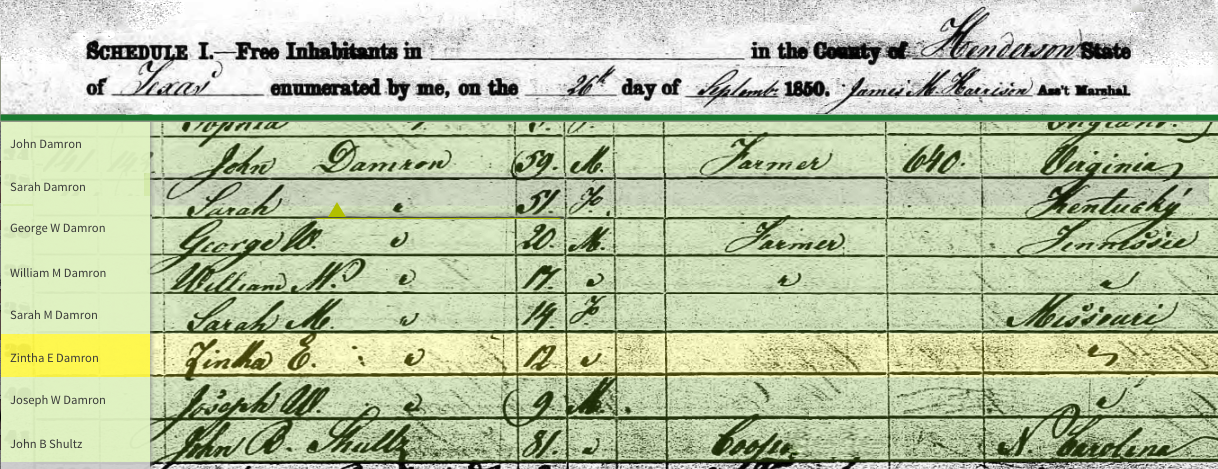 SCHEDULE I.—Free Inhabitants in in the County of Henderson State
of Texas enumerated by me, on the 26th day of Septemb. 1850. James M. Harrison Ass't Marshal.
Sophia England.
John Damron John Damron 59 M. Farmer 640. Virginia
Sarah Damron Sarah " 51 F. Kentucky
George W Damron George W. " 20. M. Farmer Tennissie
William M Damron William M. " 17. " " "
Sarah M Damron Sarah M. " 14 F Missouri
Zintha E Damron Zintha E. " 12 " "
Joseph W Damron Joseph W. " 9 M. "
John B Shultz John B. Shultz 31. " Cooper N. Carolina